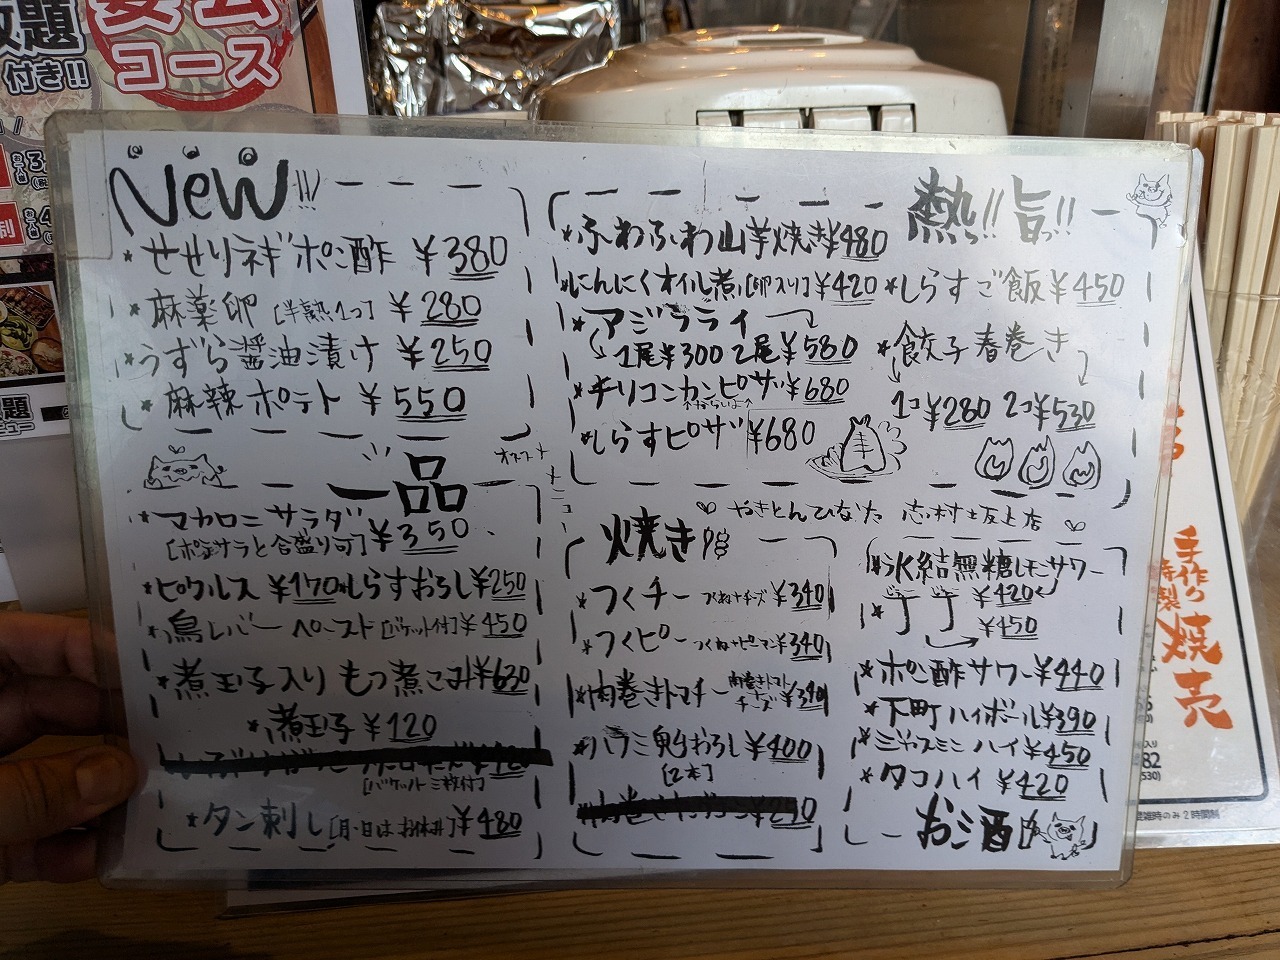 放題
付き!!
宴会
コース
New!!!
*せせりネギポン酢 ¥380
*麻薬卵[半熟1コ] ¥280
*うずら醤油漬け ¥250
*麻辣ポテト ¥550
一品
オススメメニュー
*マカロニサラダ ¥350
[ポテサラと合盛り可]
*ピクルス ¥170 *しらすおろし¥250
*鳥レバーペースト[バケット付]¥450
*煮玉子入りもつ煮こみ¥630
*煮玉子 ¥120
[バケット三枚付]
*タン刺し[月・日はお休み]¥480
熱っ!!旨っ!!
*ふわふわ山芋焼き¥480
*にんにくオイル煮[卵入り]¥420 *しらすご飯¥450
*アジフライ
1尾¥300 2尾¥580
*餃子春巻き
1コ¥280 2コ¥530
*チリコンカンピザ¥680
↑からいよ↑
*しらすピザ¥680
やきとんひなた 志村坂上店
焼き
*つくチー つくね+チーズ¥340
*つくピー つくね+ピーマン¥340
*肉巻きトマチー 肉巻きトマト+チーズ¥340
*ハラミ鬼おろし¥400
[2本]
*氷結無糖レモンサワー
¥420
¥450
*ポン酢サワー¥440
*下町ハイボール¥390
*ジャスミンハイ¥450
*タコハイ ¥420
お酒
手作り
特製
焼売